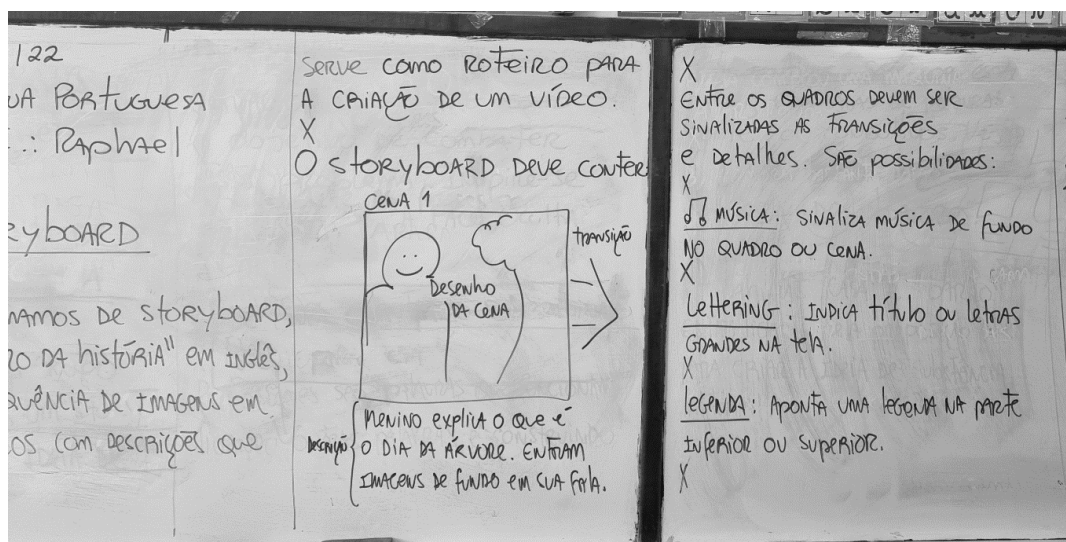 122
UA PORTUGUESA
.: RAphAEl
RyBOARD
AMOS DE STORYBOARD,
RO DA hISTÓRIA" EM INGlÊS,
QUÊNCIA DE IMAGENS EM
OS COM DESCRIÇÕES QUE
SERVE COMO ROTEIRO PARA
A CRIAÇÃO DE UM VÍDEO.
X
O STORYBOARD DEVE CONTER
CENA 1
Desenho
DA CENA
TRANSIÇÃO
DESCRIÇÃO
MENINO EXPLICA O QUE É
O DIA DA ÁRVORE. ENTRAM
IMAGENS DE FUNDO EM SUA FALA.
X
ENTRE OS QUADROS DEVEM SER
SINALIZADAS AS TRANSIÇÕES
e DETALHES. SÃO POSSIBILIDADES:
X
MÚSICA: SINALIZA MÚSICA DE FUNDO
NO QUADRO OU CENA.
X
LETTERING: INDICA TÍTULO OU LETRAS
GRANDES NA TELA.
X
LEGENDA: APONTA UMA LEGENDA NA PARTE
INFERIOR OU SUPERIOR.
X